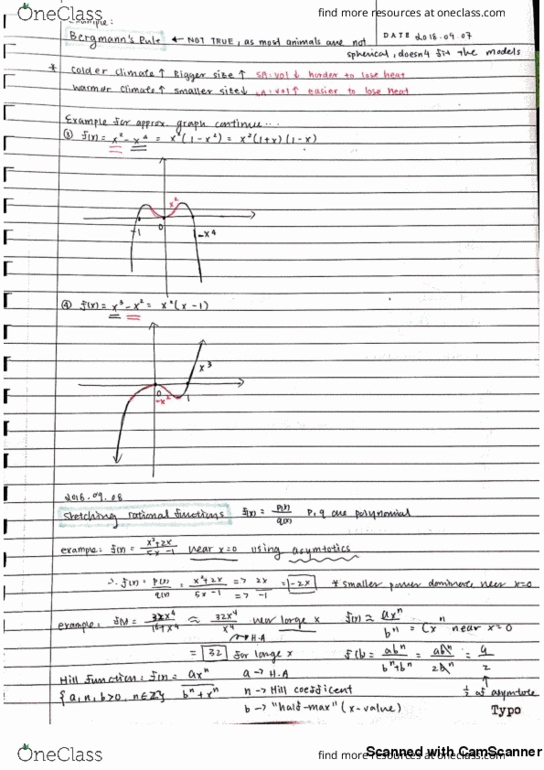 OneClass
find more resources at oneclass.com
Example:
Bergmann's Rule ← NOT TRUE, as most animals are not
DATE 2018.09.07
spherical, doesn't fit the models
* colder climate ↑ Bigger size ↑ SA:vol ↓ harder to lose heat
warmer climate ↑ smaller size ↓ SA:vol ↑ easier to lose heat
Example for approx. graph continue...
③ f(x) = x² - x⁴ = x²(1-x²) = x²(1+x)(1-x)
x²
-1 0 1
-x⁴
④ f(x) = x³ - x² = x²(x-1)
x³
0 1
-x²
2018.09.08
Sketching rational functions f(x) = p(x)/q(x) p, q are polynomial
example: f(x) = x²+2x/5x-1 near x=0 using asymtotics
∴ f(x) = p(x)/q(x) = x²+2x/5x-1 => 2x/-1 = -2x * smaller power dominate, near x=0
example: f(x) = 32x⁴/16+x⁴ ≈ 32x⁴/x⁴ near large x f(x) ≈ axⁿ/bⁿ = Cxⁿ near x=0
→ H.A
= 32 for large x f(b) = abⁿ/bⁿ+bⁿ = abⁿ/2bⁿ = a/2
Hill function: f(x) = axⁿ/bⁿ+xⁿ a → H.A
{a, n, b>0, n∈Z} n → Hill coefficent
½ of asymptote
b → "half-max" (x-value)
Typo
Scanned with CamScanner
OneClass
find more resources at oneclass.com